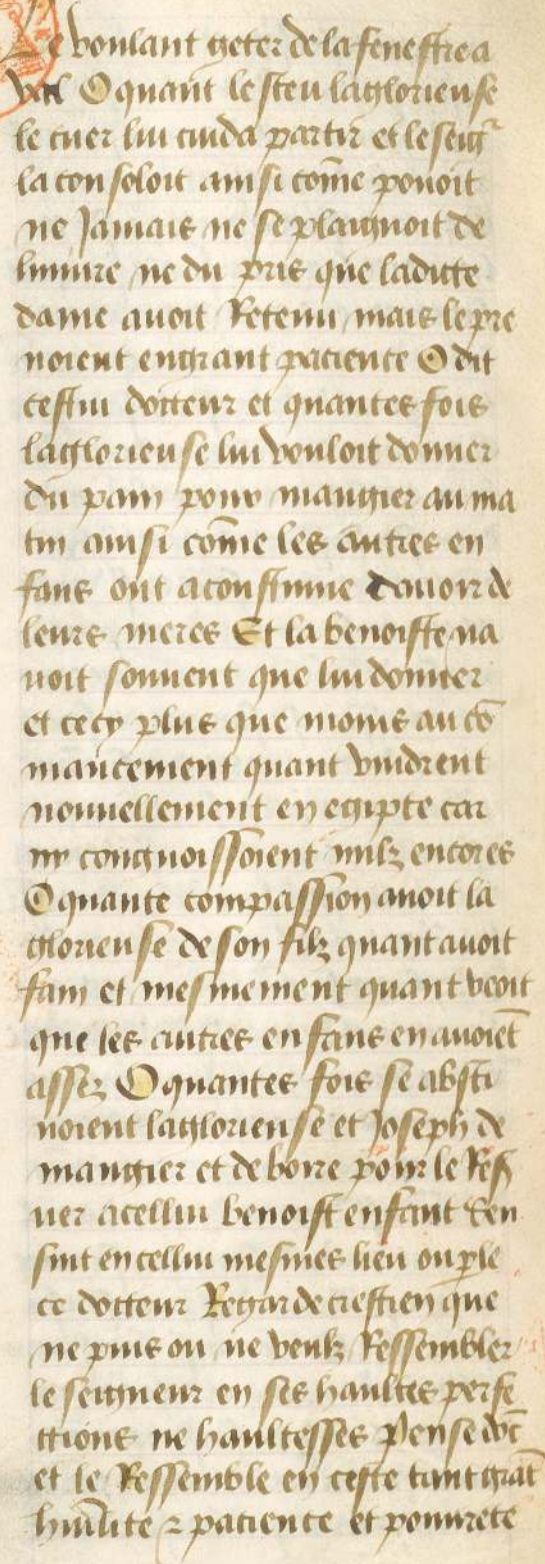 Se voulant geter de la fenestre a
val O quant le sceu la glorieuse
le cuer lui cuida partir et le seigr
la consoloit ainsi cõme povoit
ne Jamais ne se plaignoit de
liniure ne du pris que ladicte
dame avoit Retenu mais le pre
noient en grant pacience O dit
cestui docteur et quantes fois
la glorieuse lui vouloit donner
du pain pour mangier au ma
tin ainsi cõme les autres en
fans ont acoustume davoir de
leurs meres Et la benoiste na
voit souvent que lui donner
et cecy plus que moins au cõ
mancement quant vindrent
nouvellement en egipte car
ny congnoissoient nulz encores
O quante compassion avoit la
glorieuse de son filz quant avoit
fain et mesmement quant veoit
que les autres enfans en avoiẽt
assez O quantes fois se absti
noient la glorieuse et Joseph de
mangier et de boire pour le Res
ver a cellui benoist enfant Een
suit en cellui mesmes lieu ou ꝑle
ce docteur Regarde crestien que
ne puis ou ne veulz Ressembler
le seigneur en ses haultes perfe
ctions ne haultesses Pense dõc
et le Ressemble en ceste tant grãt
humilite ⁊ pacience et pouvrete